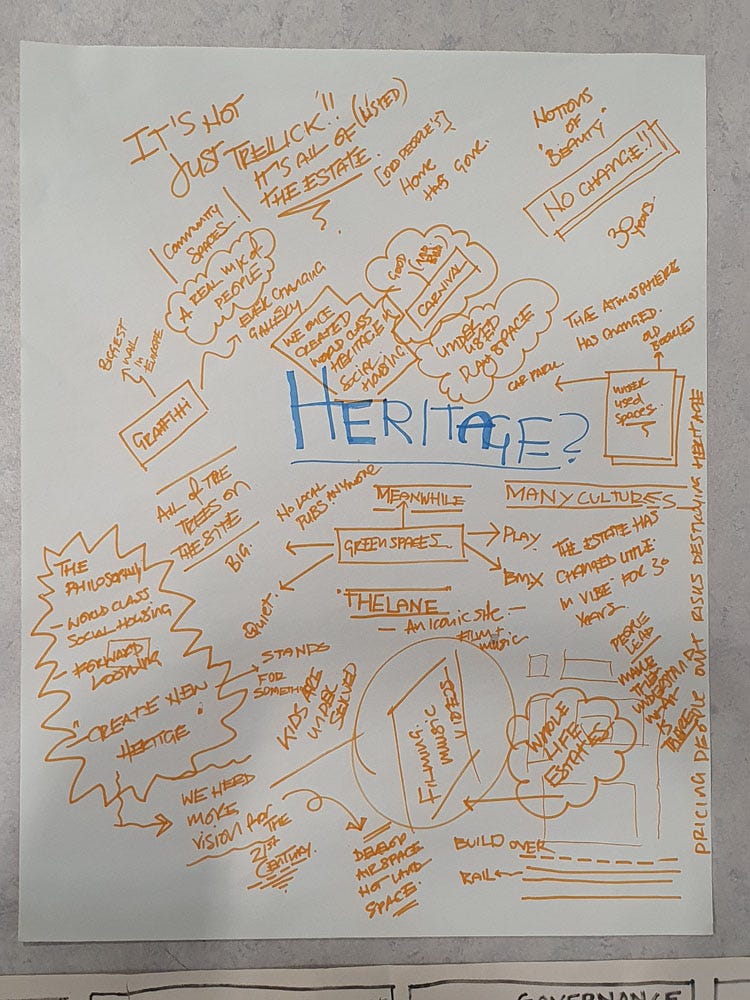 IT'S NOT
JUST TRELLICK!!
IT'S ALL OF (LISTED)
THE ESTATE.
[OLD PEOPLE'S]
HOME
HAS GONE.
NOTIONS
OF
BEAUTY.
NO CHANGE!!
30 years.
COMMUNITY
SPACES.
A REAL MIX OF
PEOPLE
EVER CHANGING
GALLERY
BIGGEST
WALL
IN
EUROPE
GRAFFITI
WE ONCE
CREATED
WORLD CLASS
HERITAGE IN
SOCIAL
HOUSING
GOOD
AND
BAD
CARNIVAL
UNDER
USED
PLAY SPACE
THE ATMOSPHERE
HAS CHANGED.
OLD
CAR PARK.
UNDER
USED
SPACES.
HERITAGE?
ALL OF THE
TREES ON
THE SITE
NO LOCAL
PUBS ANYMORE
MEANWHILE
MANY CULTURES
GREEN SPACES
BIG.
QUIET.
PLAY.
BMX
THE ESTATE HAS
CHANGED LITTLE
IN VIBE FOR 30
YEARS.
THE LANE
- AN ICONIC SITE -
FILM
MUSIC
THE
PHILOSOPHY
- WORLD CLASS
SOCIAL HOUSING
- FORWARD
LOOKING
- CREATE NEW
HERTIGE
STANDS
FOR
SOMETHING
KIDS ARE
UNDER
SERVED
FILMING.
MUSIC
VIDEOS
WHOLE
LIFE
ESTATES
PEOPLE
LEAD
MAKE
THEM
UNDERSTAND
WHAT
IS
THERE
PRICING PEOPLE OUT RISKS DESTROYING HERITAGE
WE NEED
MORE
VISION FOR
THE
21ST
CENTURY.
DEVELOP
AIRSPACE
NOT LAND
SPACE.
BUILD OVER
RAIL
GOVERNANCE